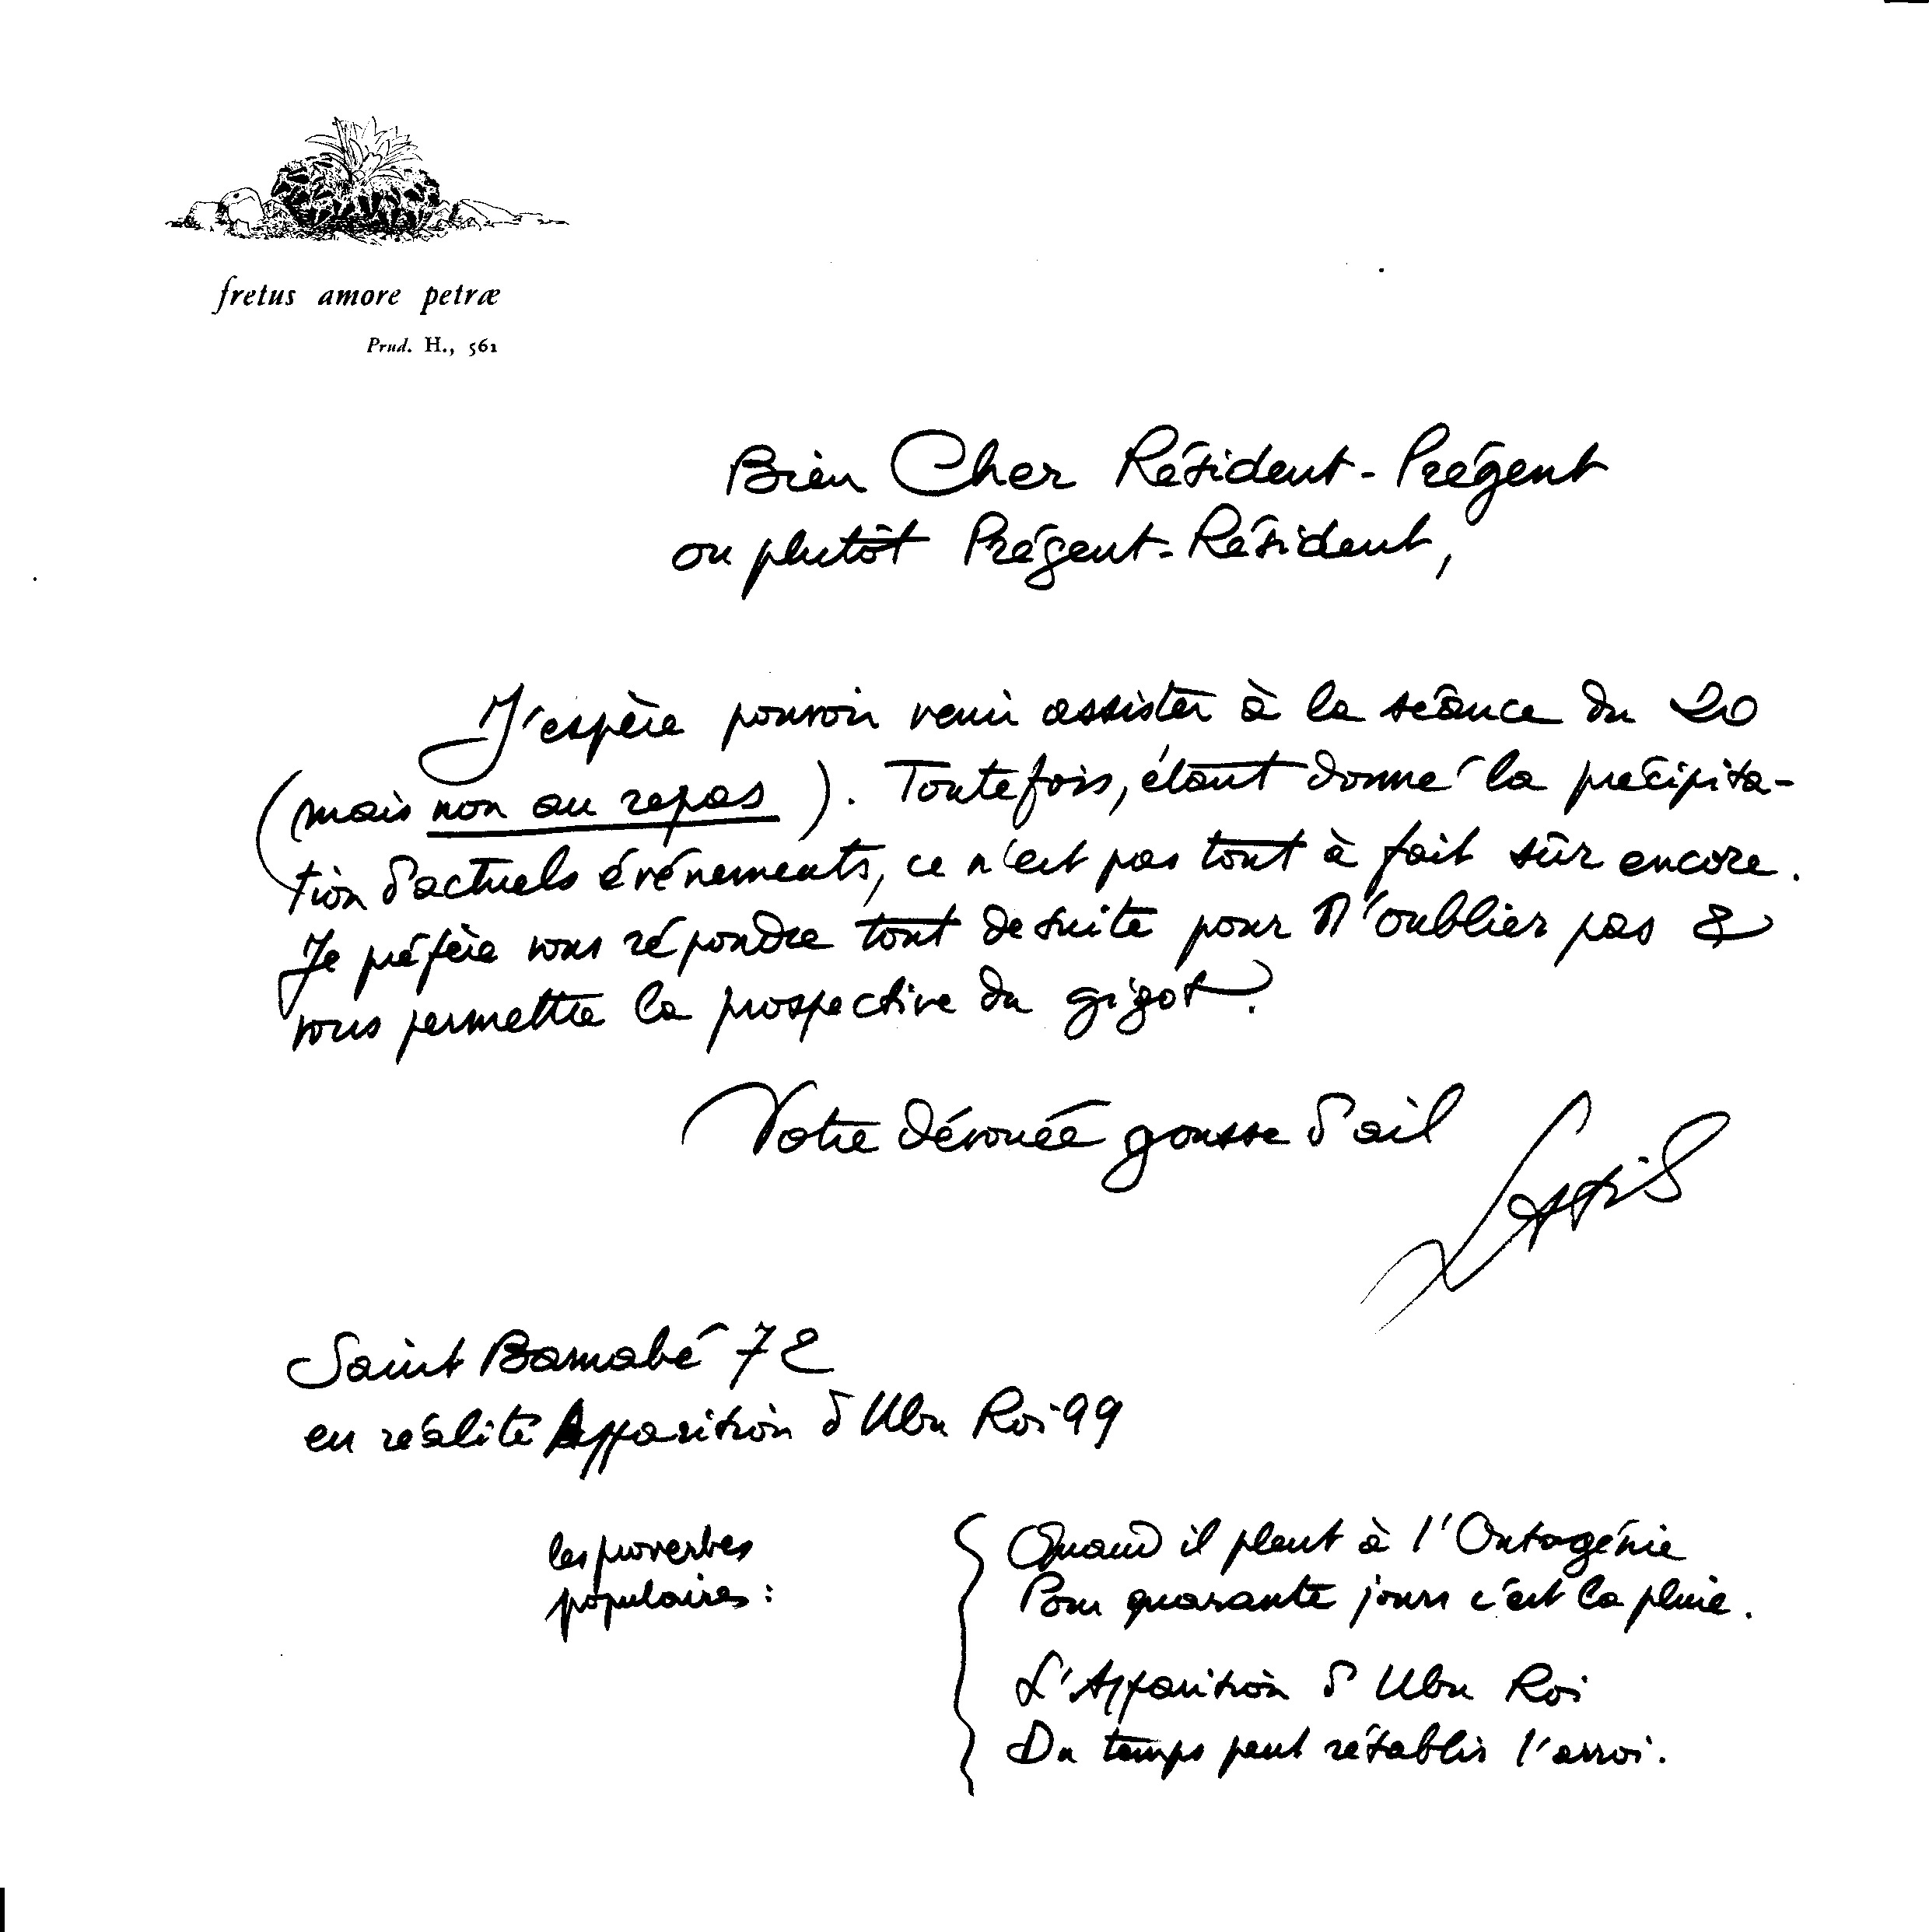 fretus amore petræ
Prud. H., 561
Bien Cher Résident-Prégent
ou plutôt Prégent-Résident,
J'espère pouvoir venir assister à la séance du 20
(mais non au repas). Toutefois, étant donné la précipita-
tion d'actuels événements, ce n'est pas tout à fait sûr encore.
Je préfère vous répondre tout de suite pour n'oublier pas &
vous permettre la prospective du gigot.
Votre dévouée gousse d'ail
Latis
Saint Barnabé 72
en réalité Apparition d'Ubu Roi 99
les proverbes
populaires :
Quand il pleut à l'Ontogénie
Pour quarante jours c'est la pluie.
L'Apparition d'Ubu Roi
Du temps peut rétablir l'arroi.